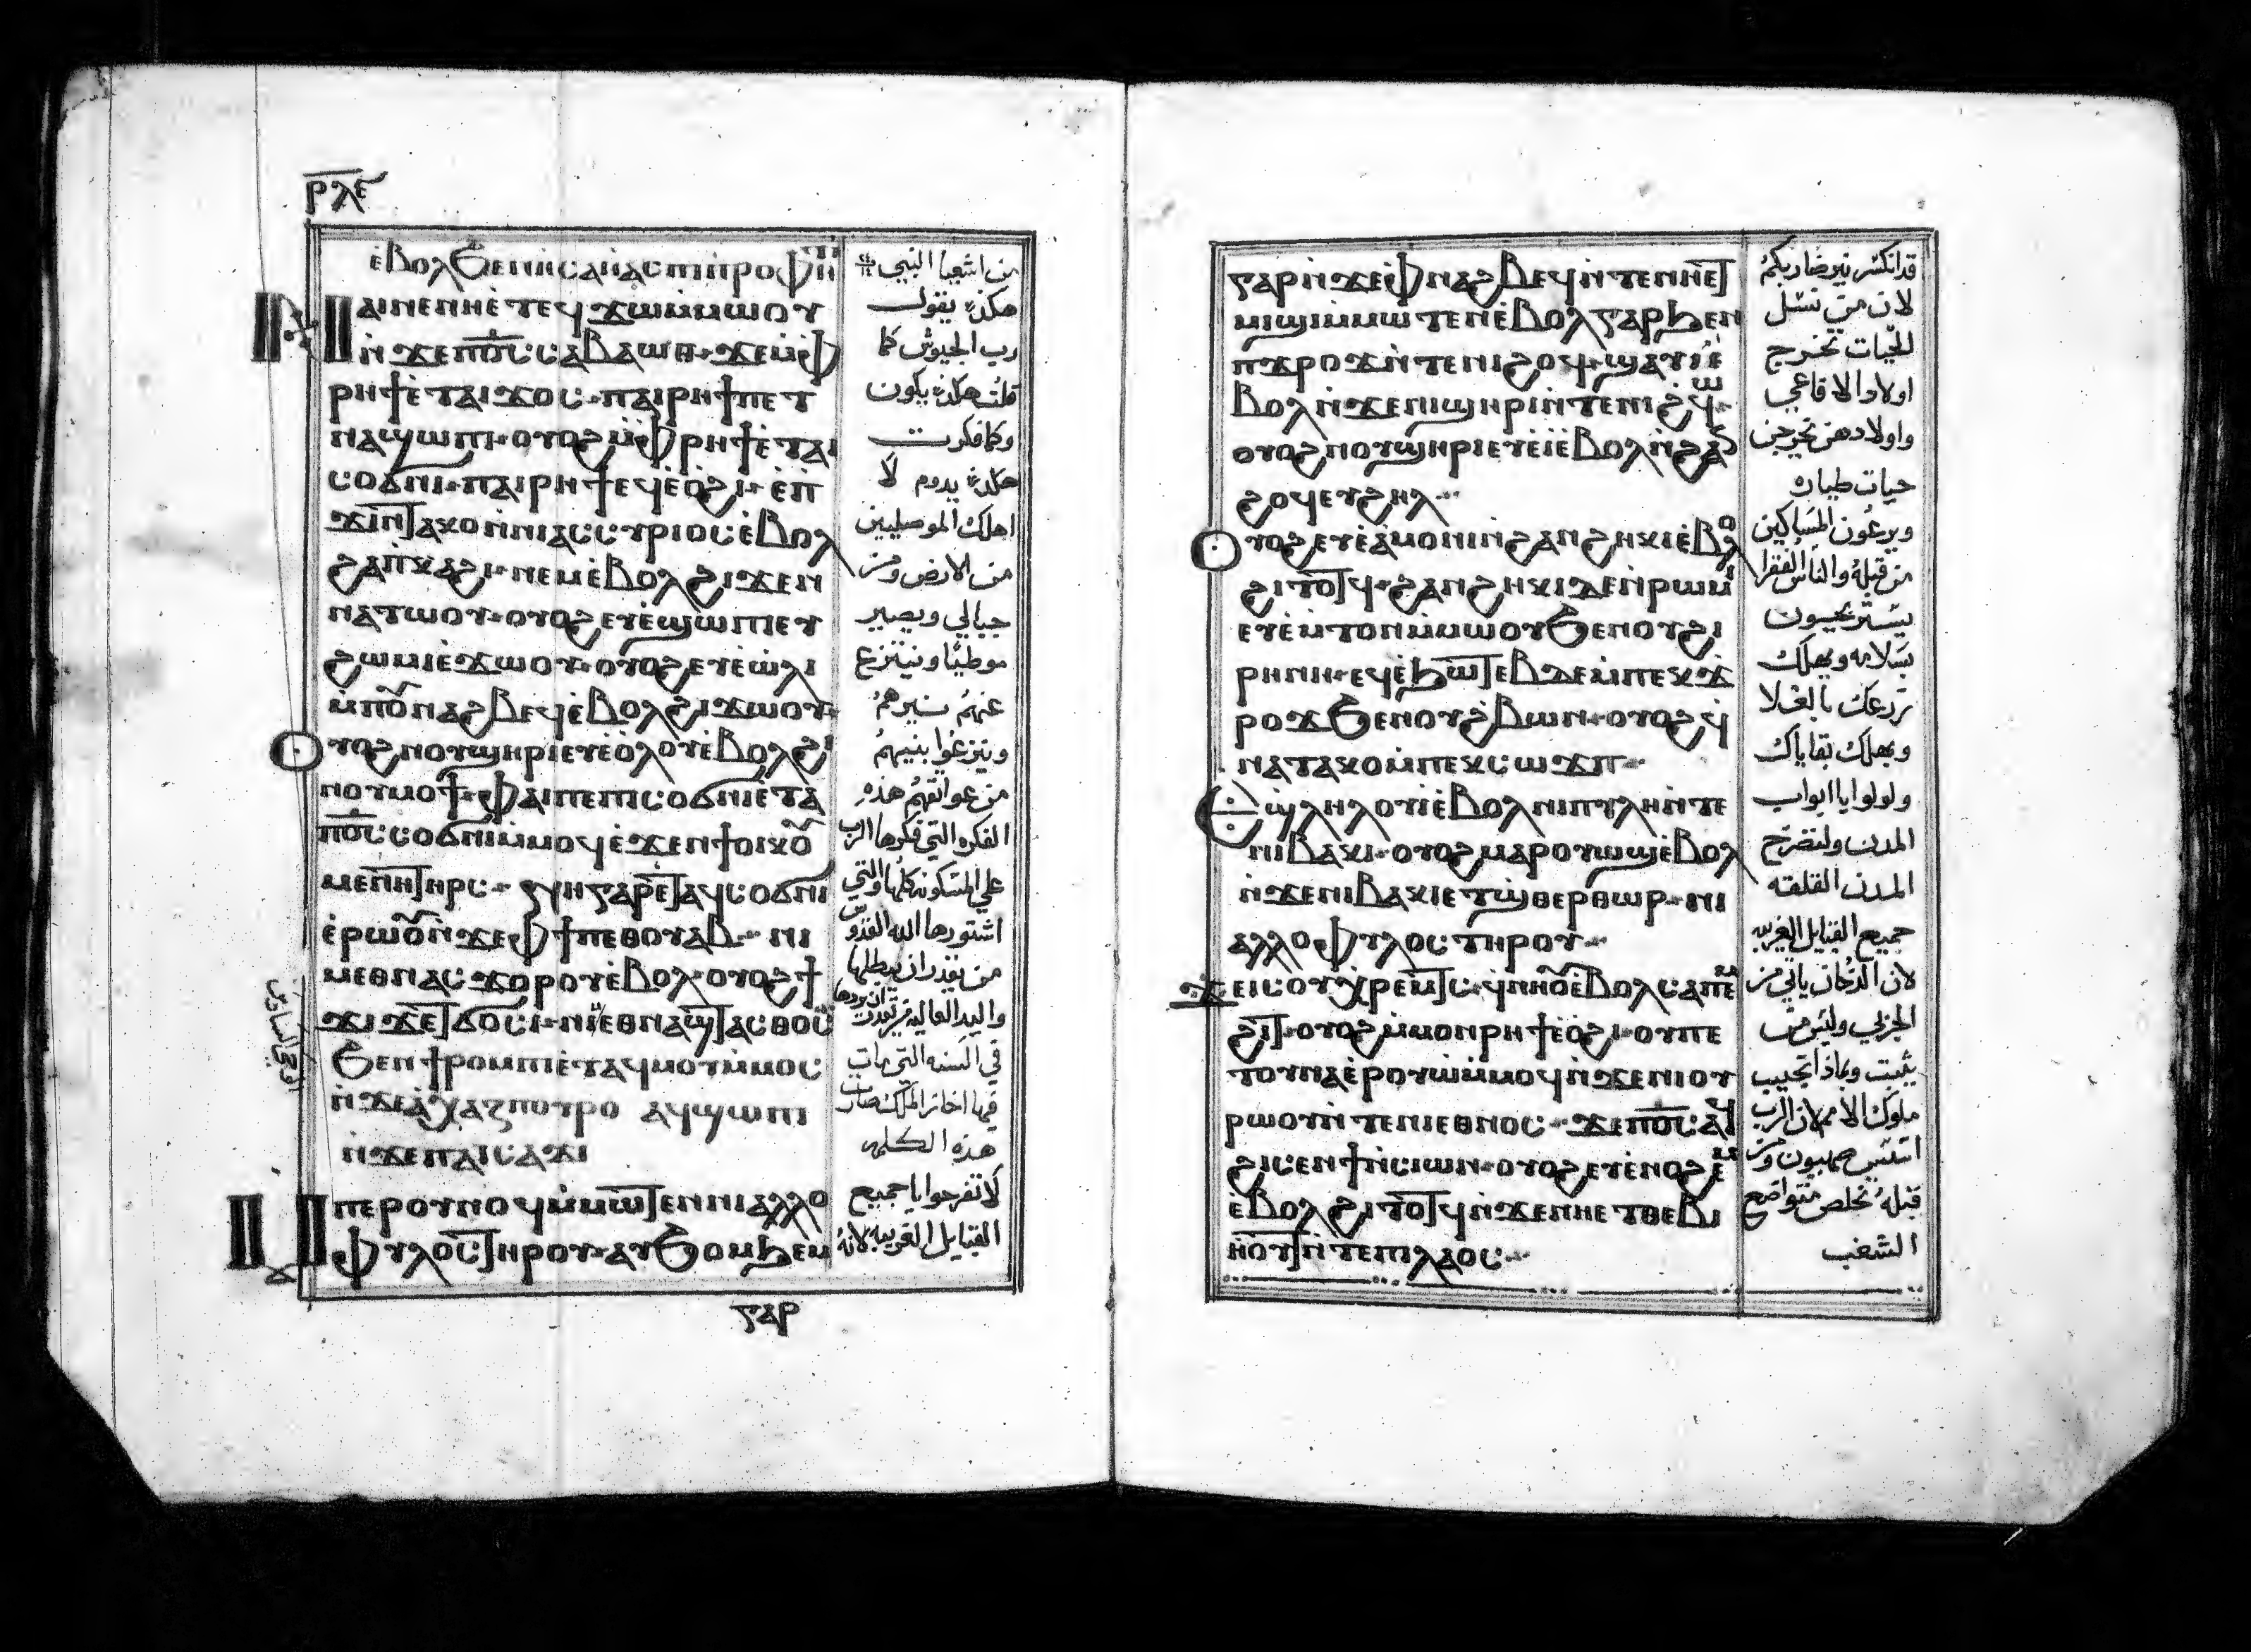 ⲣⲗⲉ
ⲉ̀ⲃⲟⲗϧⲉⲛⲏⲥⲁⲏ̀ⲁⲥⲡⲓⲡⲣⲟⲫⲏ
ⲡⲁⲓⲛⲉⲛⲏⲉ̀ⲧⲉϥϫⲱⲙ̀ⲙⲱⲟⲩ
ⲛ̀ϫⲉⲡⲟ̅ⲥ̅ⲥⲁⲃⲁⲱⲑ·ϫⲉⲙ̀ⲫ
ⲣⲏϯⲉ̀ⲧⲁⲓϫⲟⲥ·ⲡⲁⲓⲣⲏϯⲡⲉⲧ
ⲛⲁϣⲱⲡⲓ·ⲟⲩⲟϩⲙ̀ⲫⲣⲏϯⲉ̀ⲧⲁⲓ
ⲥⲟϭⲛⲓ·ⲡⲁⲓⲣⲏϯⲉϥⲉ̀ⲟ̀ϩⲓ·ⲉ̀ⲡ
ϫⲓⲛⲧⲁⲕⲟⲛ̀ⲛⲓⲁⲥⲥⲩⲣⲓⲟⲥⲉ̀ⲃⲟⲗ
ϩⲁⲡ̀ⲕⲁϩⲓ·ⲛⲉⲙⲉ̀ⲃⲟⲗϩⲓϫⲉⲛ
ⲛⲁⲧⲱⲟⲩ·ⲟⲩⲟϩⲉⲩⲉ̀ϣⲱⲡⲓⲉⲩ
ϩⲱⲙⲓⲉ̀ϫⲱⲟⲩ·ⲟⲩⲟϩⲉⲩⲉ̀ⲱ̀ⲗⲓ
ⲙ̀ⲡⲟⲩⲛⲁϩⲃⲉϥⲉ̀ⲃⲟⲗϩⲓϫⲱⲟⲩ
ⲟⲩⲟϩⲛⲟⲩϣⲏⲣⲓⲉⲩⲉ̀ⲟ̀ⲗⲟⲩⲉ̀ⲃⲟⲗϩⲓ
ⲛⲟⲩⲙⲟϯ·ⲫⲁⲓⲡⲉⲡⲓⲥⲟϭⲛⲓⲉ̀ⲧⲁ
ⲡⲟ̅ⲥ̅ⲥⲟϭⲛⲓⲙ̀ⲙⲟϥⲉ̀ϫⲉⲛϯⲟⲓⲕⲟⲩ
ⲙⲉⲛⲏⲧⲏⲣⲥ·ⲫⲏⲅⲁⲣⲉ̀ⲧⲁϥⲥⲟϭⲛⲓ
ⲉ̀ⲣⲱⲟⲩⲛ̀ϫⲉⲫϯⲡⲉⲑⲟⲩⲁⲃ·ⲛⲓ
ⲙⲉⲑⲛⲁⲥϫⲟⲣⲟⲩⲉ̀ⲃⲟⲗ·ⲟⲩⲟϩϯ
ϫⲓϫⲉⲧϭⲟⲥⲓ·ⲛⲓⲙⲉⲑⲛⲁϣⲧⲁⲥⲑⲟⲥ
ϧⲉⲛϯⲣⲟⲙⲡⲓⲉ̀ⲧⲁϥⲙⲟⲩⲙ̀ⲙⲟⲥ
ⲛ̀ϫⲉⲁ̀ⲭⲁⲍⲡⲟⲩⲣⲟ ⲁϥϣⲱⲡⲓ
ⲛ̀ϫⲉⲡⲁⲓⲥⲁϫⲓ
ⲙⲡⲉⲣⲟⲩⲛⲟϥⲙ̀ⲙⲱⲧⲉⲛⲛⲓⲁⲗⲗⲟ
ⲫⲩⲗⲟⲥⲧⲏⲣⲟⲩ·ⲁⲩϧⲟⲙϧⲉⲙ
ⲅⲁⲣ
من اشعيا النبي
هكذي يقول
رب الجيوش كما
قلت هكذي يكون
وكما فكرت
هكذي يدوم لا
اهلك الموصليين
من الارض ومن
جبالي ويصير
موطيا وينتزع
عنهم نيرهم
وينزعوا بنيهم
من عواتقهم هذه
الفكره التي فكرها الرب
علي المسكونه كلها والتي
اشتورها الله القدوس
من يقدر ان يبطلها
واليد العاليه من يقدر ان يردها
في السنه التي مات
فيها احاز الملك صارت
هذه الكلمه
لا تفرحوا يا جميع
القبايل الغريبه لانه
ⲅⲁⲣⲛ̀ϫⲉⲫⲛⲁϩⲃⲉϥⲛ̀ⲧⲉⲛⲏⲉⲧ
ⲙⲓϣⲓⲙ̀ⲙⲱⲧⲉⲛⲉ̀ⲃⲟⲗⲅⲁⲣϧⲉⲛ
ⲡϫⲣⲟϫⲛ̀ⲧⲉⲛⲓϩⲟϥ·ϣⲁⲩⲓ̀ⲉ̀
ⲃⲟⲗⲛ̀ϫⲉⲛⲓϣⲏⲣⲓⲛ̀ⲧⲉⲡⲓϩϥ·
ⲟⲩⲟϩⲛⲟⲩϣⲏⲣⲓⲉⲩⲉ̀ⲓ̀ⲉ̀ⲃⲟⲗⲛ̀ϩⲁⲛ
ϩⲟϥⲉⲩϩⲏⲗ·
ⲟⲩⲟϩⲉⲩⲉ̀ⲁ̀ⲙⲟⲛⲓⲛ̀ϩⲁⲛϩⲏⲕⲓⲉ̀ⲃⲟⲗ
ϩⲓⲧⲟⲧϥ·ϩⲁⲛϩⲏⲕⲓⲇⲉⲛ̀ⲣⲱⲙⲓ
ⲉⲩⲉ̀ⲙⲧⲟⲛⲙ̀ⲙⲱⲟⲩϧⲉⲛⲟⲩϩⲓ
ⲣⲏⲛⲏ·ⲉϥⲉ̀ϧⲱⲧⲉⲃⲇⲉⲙ̀ⲡⲉⲕϫ
ⲣⲟϫϧⲉⲛⲟⲩϩ̀ⲃⲱⲛ·ⲟⲩⲟϩϥ
ⲛⲁⲧⲁⲕⲟⲙ̀ⲡⲉⲕⲥⲱϫⲡ·
ⲱϣⲗⲏⲗⲟⲩⲓ̀ⲉ̀ⲃⲟⲗⲛⲓⲡⲩⲗⲏⲛ̀ⲧⲉ
ⲛⲓⲃⲁⲕⲓ·ⲟⲩⲟϩⲙⲁⲣⲟⲩⲱϣⲉ̀ⲃⲟⲗ
ⲛ̀ϫⲉⲛⲓⲃⲁⲕⲓⲉⲧϣ̀ⲑⲉⲣⲑⲱⲣ·ⲛⲓ
ⲁⲗⲗⲟⲫⲩⲗⲟⲥⲧⲏⲣⲟⲩ·
ϫⲉⲓⲥⲟⲩⲭⲣⲉⲙⲧⲥ·ϥⲛⲏⲟⲩⲉ̀ⲃⲟⲗⲥⲁⲡⲉⲙ
ϩⲓⲧ·ⲟⲩⲟϩⲙ̀ⲙⲟⲛⲣⲏϯⲉ̀ⲟ̀ϩⲓ·ⲟⲩⲡⲉ
ⲧⲟⲩⲛⲁⲉ̀ⲣⲟⲩⲱ̀ⲙ̀ⲙⲟϥⲛ̀ϫⲉⲛⲓⲟⲩ
ⲣⲱⲟⲩⲛ̀ⲧⲉⲛⲓⲉⲑⲛⲟⲥ·ϫⲉⲡⲟ̅ⲥ̅ⲁϥ
ϩⲓⲥⲉⲛϯⲛ̀ⲥⲓⲱⲛ·ⲟⲩⲟϩⲉⲩⲉ̀ⲛⲟϩⲉⲙ
ⲉ̀ⲃⲟⲗϩⲓⲧⲟⲧϥⲛ̀ϫⲉⲛⲏⲉⲧⲑⲉⲃⲓ
ⲏⲟⲩⲧⲛ̀ⲧⲉⲡⲓⲗⲁⲟⲥ·
قد انكسر نير ضاربكم
لان من نسل
الحيات تخرج
اولاد الافاعي
واولادهن تخرجن
حيات طياره
ويرعون المساكين
من قبله والناس الفقرا
يستريحون
بسلامه ويهلك
زرعك بالغلا
ويهلك بقاياك
ولولوا يا ابواب
المدن ولتصرخ
المدن القلقه
جميع القبايل الغريبه
لان الدخان ياتي من
البحري وليس من
يثبت وبماذا تجيب
ملوك الامم لان الرب
اسس صهيون ومن
قبله تخلص متواضع
الشعب